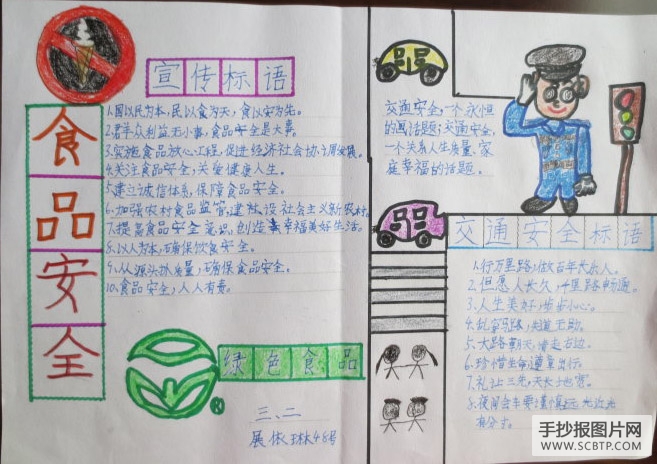 宣传标语
食品安全
1.国以民为本,民以食为天,食以安为先。
2.群众利益无小事,食品安全是大事。
3.实施食品放心工程,促进经济社会协调发展。
4.关注食品安全,关爱健康人生。
5.建立诚信体系,保障食品安全。
6.加强农村食品监管,建设社会主义新农村。
7.提高食品安全意识,创造幸福美好生活。
8.以人为本,确保饮食安全。
9.从源头抓质量,确保食品安全。
10.食品安全,人人有责。
绿色食品
R
三、二
展 琳48号
交通安全,一个永恒
的话题;交通安全,
一个关系人生质量、家
庭幸福的话题。
交通安全标语
1.行万里路,做百年长乐人。
2.但愿人长久,千里路畅通。
3.人生美好,步步小心。
4.乱穿马路,失道无助。
5.大路朝天,请走右边。
6.珍惜生命,遵章出行。
7.礼让三先,天长地宽。
8.夜间会车要谨慎,远光近光
有分寸。
手抄报图片网
WWW.SCBTP.COM